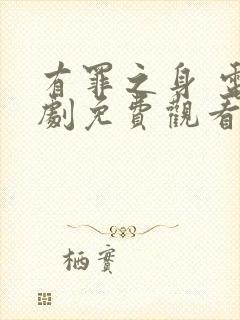 有罪之身 電
劇免費觀看
栖實